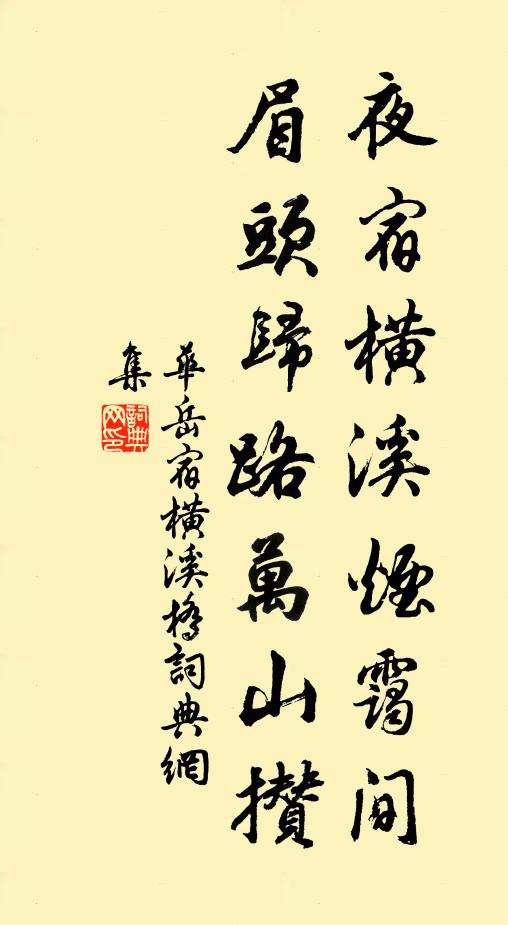 夜宿橫溪煙靄间
眉頭歸路萬山攢
華岳宿橫溪橋詞典網
集
詞典
网印